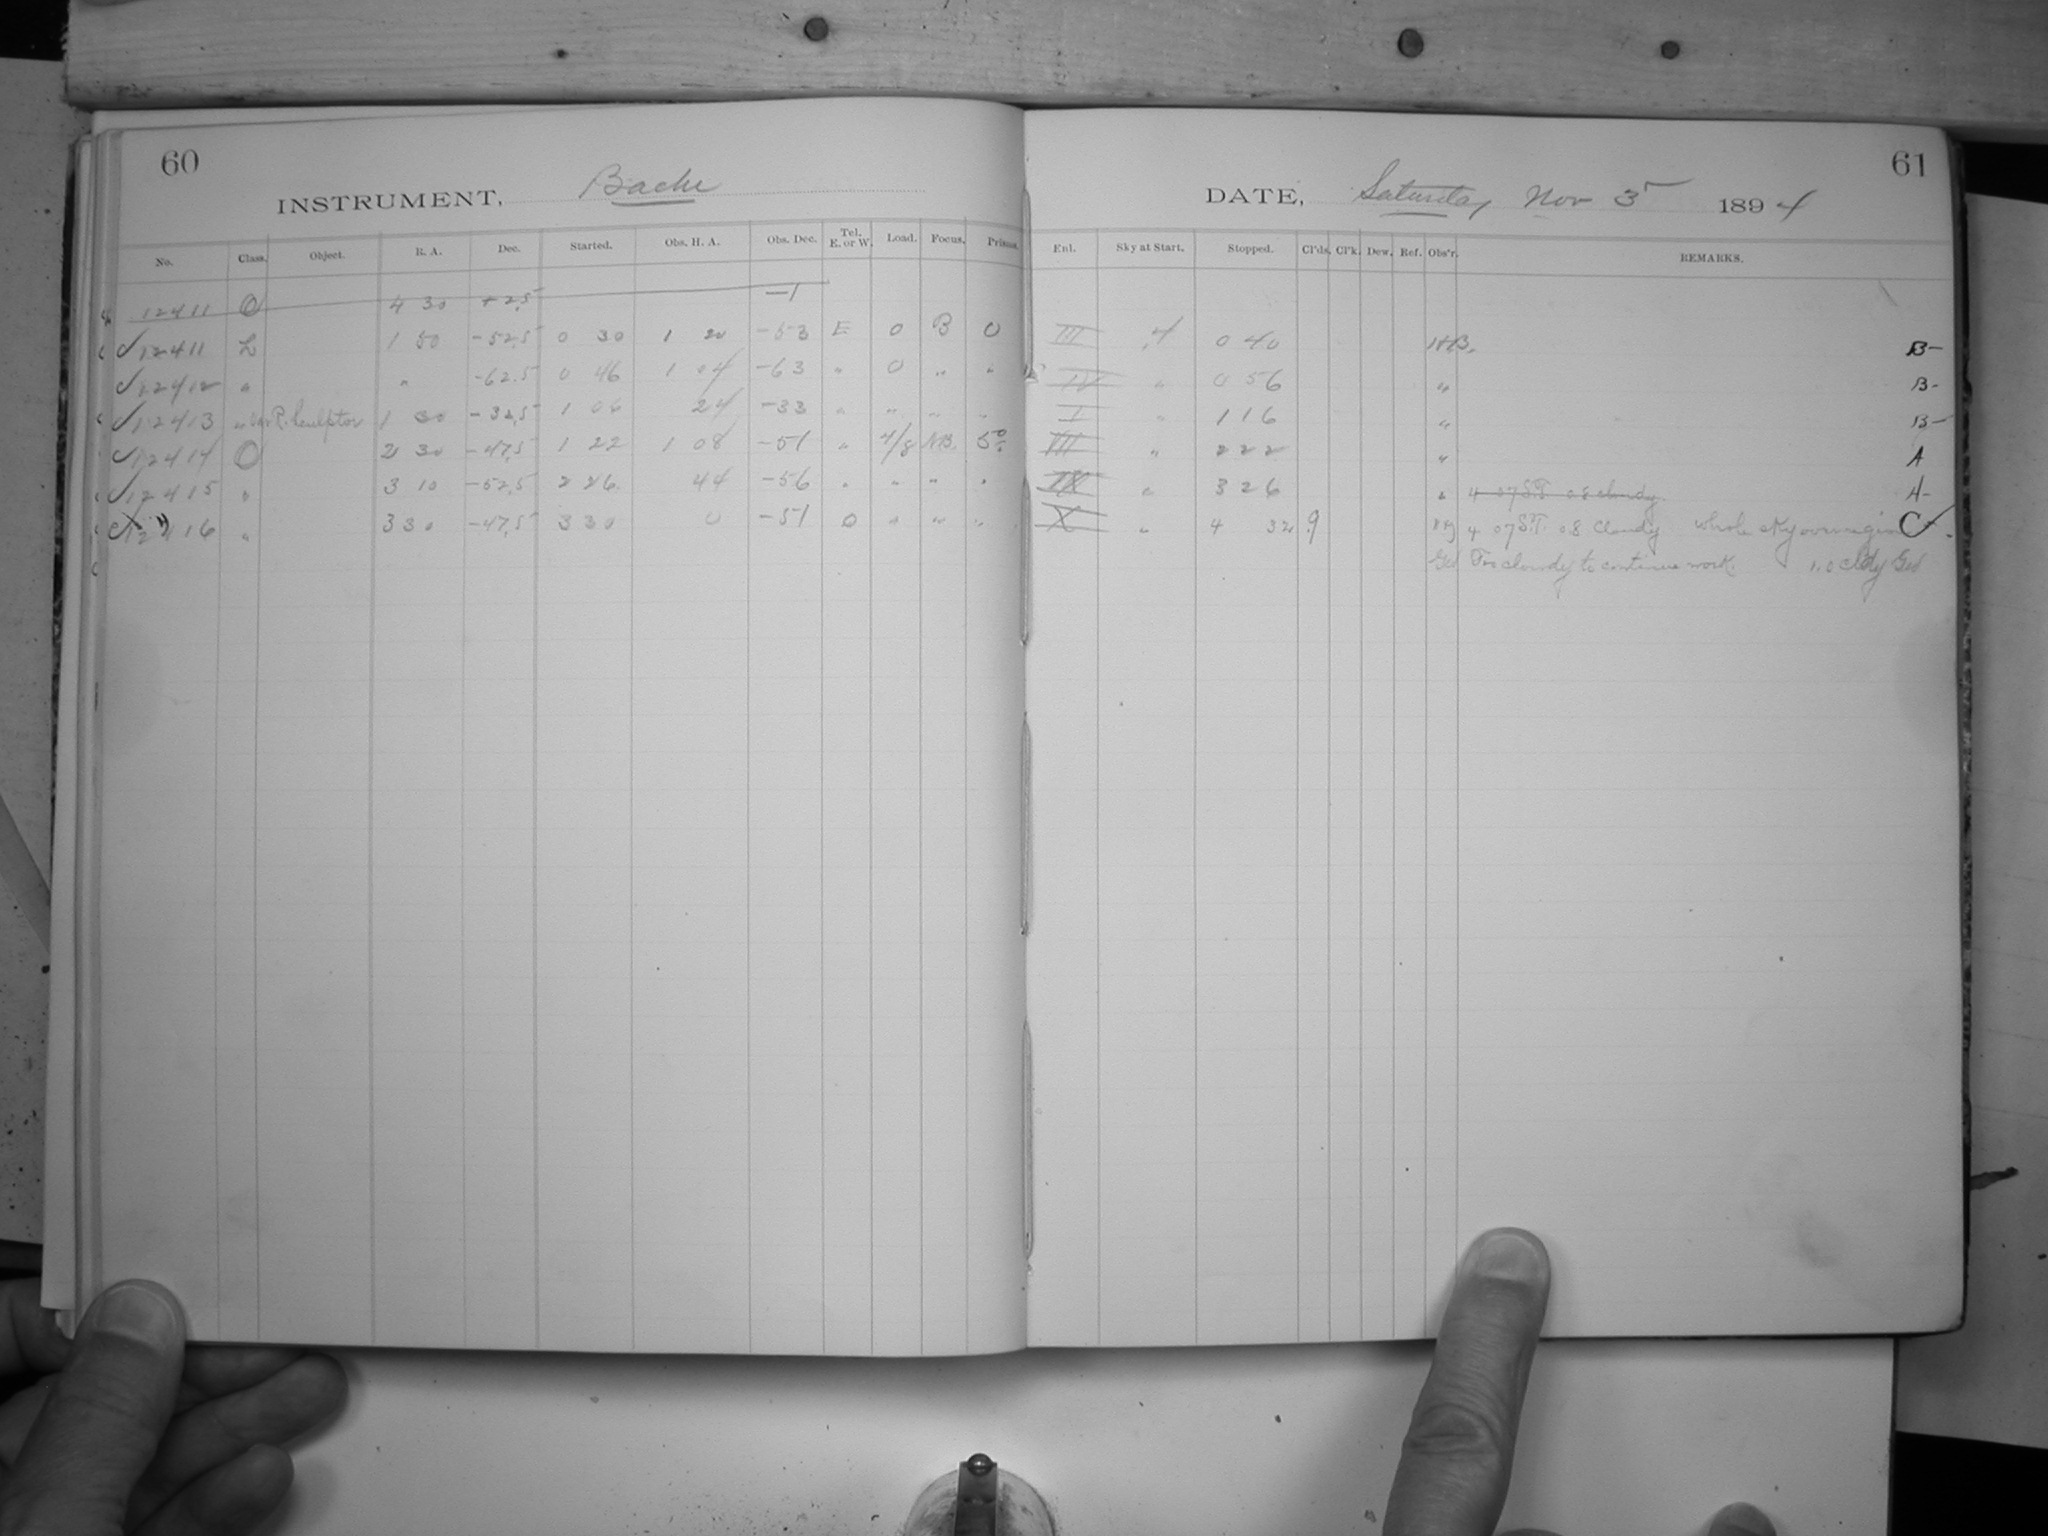 60
INSTRUMENT, Bache
No. Class. Object. R. A. Dec. Started. Obs. H. A. Obs. Dec. Tel. E. or W. Load. Focus. Prisms.
12411 O 4 30 +2.5 -1
12411 L 1 50 -52.5 0 30 1 20 -53 E 0 B 0
12412 " " -62.5 0 46 1 04 -63 " 0 " "
12413 " R. Sculptor 1 30 -32.5 1 06 24 -33 " " " "
12414 O 2 30 -47.5 1 22 1 08 -51 " 4/8 NB. 5°
12415 " 3 10 -52.5 2 26 44 -56 " " " "
12416 " 3 30 -47.5 3 30 0 -51 0 " " "
61
DATE, Saturday Nov 3 1894
Enl. Sky at Start. Stopped. Cl'ds. Cl'k. Dew. Ref. Obs'r. REMARKS.
III 4 0 40 HB. B-
IV " 0 56 " B-
I " 1 16 " B-
VIII " 2 22 " A
IX " 3 26 " 4 07 S.T. 08 cloudy. A-
X " 4 32 .9 4 07 S.T. 08 Cloudy whole sky over region C+
Too cloudy to continue work. 1.0 cldy